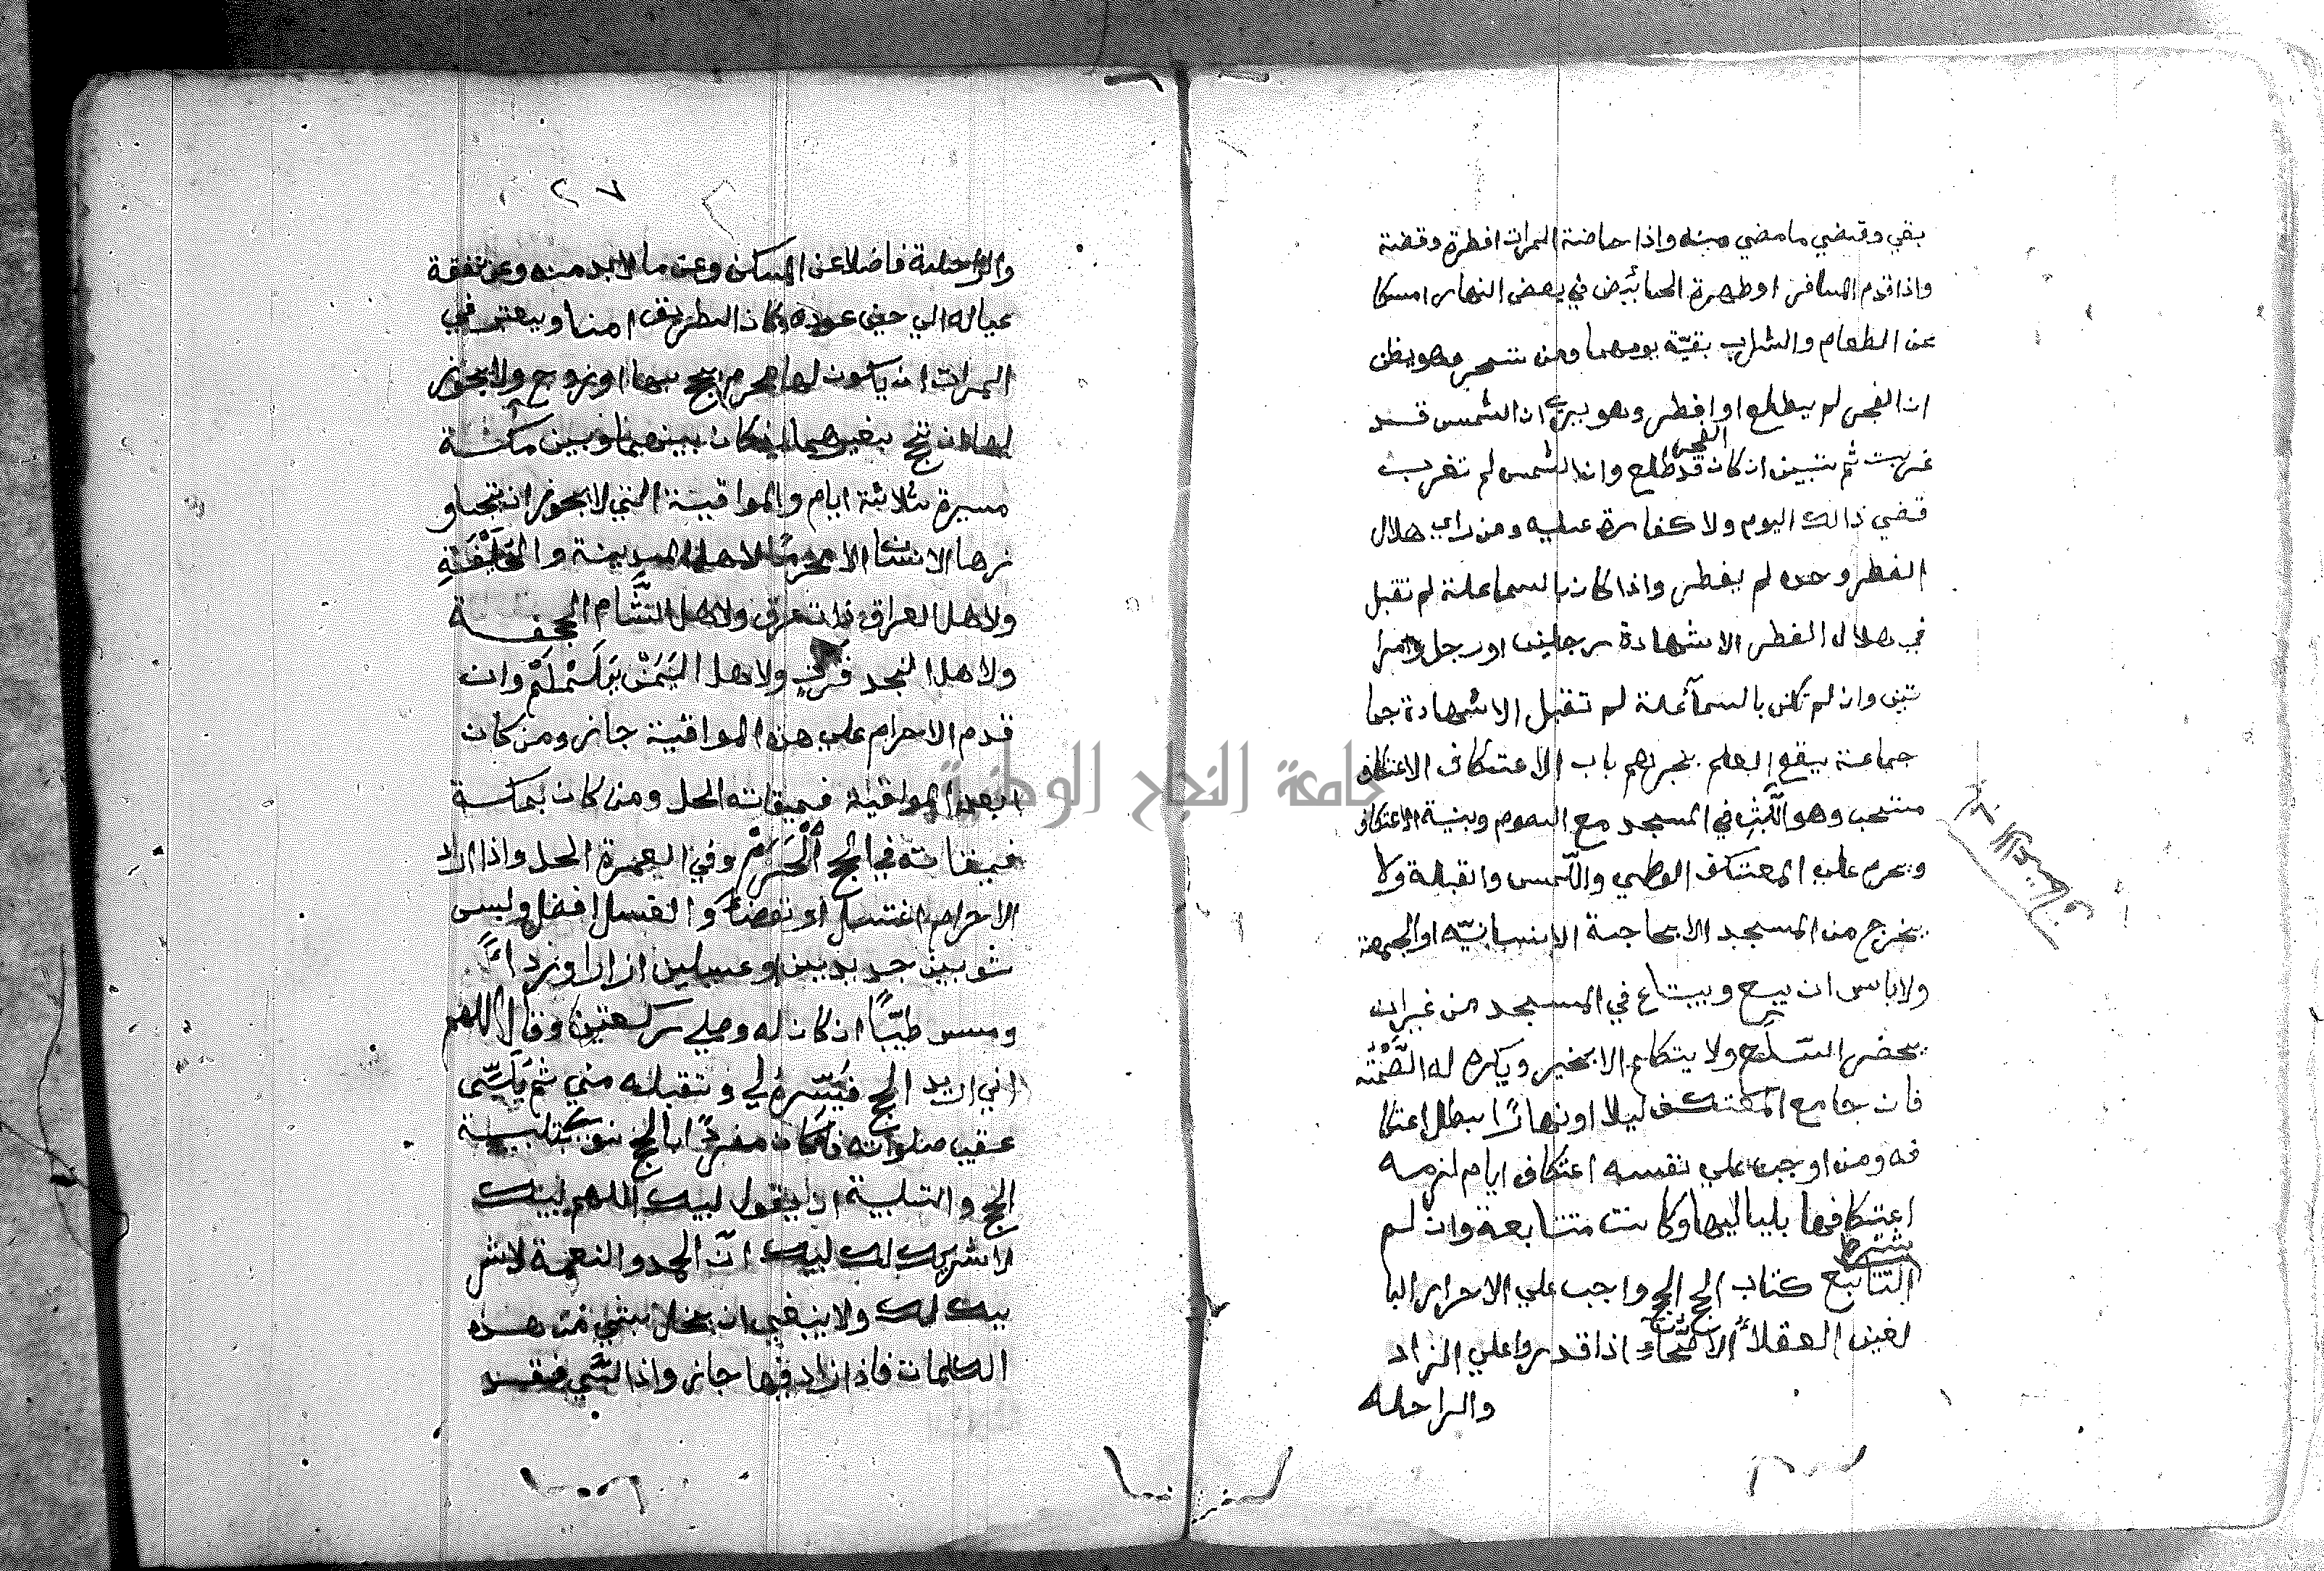 بقي وقيضي ما مضي منه واذا حاضة المرات افطرة وقضة
واذا قدم المسافر او طهرة الحائيض في بعض النهار امسكا
عن الطعام والشراب بقيّة يومهما ومن تسحر وهو يظن
ان الفجر لم يطلع او افطر وهو يري ان الشمس قد
غربت ثم تبين ان كان قد الفجر طلع وان الشمس لم تغرب
قضي ذالك اليوم ولا كفارة عليه ومن راي هلال
الفطر وحده لم يفطر واذا كان بالسما علة لم تقبل
في هلال الفطر الا شهادة رجلين او رجل وامرا
تين وان لم تكن بالسمآء علة لم تقبل الا شهادة جما
جماعة يقع العلم بخبرهم باب الاعتكاف الاعتكاف
مستحب وهو اللّبث في المسجد مع الصوم وبنية الاعتكاف
ويحرم علي المعتكف الوطي واللّمس والقبلة ولا
يخرج من المسجد الا بحاجة الانسانيّه او الجمعة
ولا باس ان يبيع ويبتاع في المسجد من غير ان
يحضر السّلع ولا يتكلم الا بخير ويكره له الصّمت
فان جامع المعتكف ليلا او نهارًا بطل اعتكا
فه ومن اوجب علي نفسه اعتكاف ايام لزمه
اعتكافها بلياليها وكانت متتابعة وان لم
يشترط
التتابع كتاب الحج الحج واجب علي الاحرار البا
لغين العقلاء الاصّحآء اذا قدروا علي الزاد
والراحله
٢٧
والراحلة فاضلا عن المسكن وعن ما لا بد منه وعن نفقة
عياله الي حين عوده وكان الطريق امنا ويعتبر في
المرات ان يكون لها محرم يحج بها او زوج ولا يجوز
لها ان تحج بغيرهما اذا كان بينهما وبين مكة
مسيرة ثلاثة ايام والمواقية التي لا يجوز ان يتجاو
زها الانسان الا محرمًا لاهل المدينة ذوالحليفة
ولاهل العراق ذات عرق ولاهل الشّام الجحفة
ولاهل النجد قرن ولاهل اليمن يلملم وان
قدم الاحرام علي هذه المواقية جاز ومن كان
بعد المواقية فميقاته الحل ومن كان بمكة
فميقاته في الحج الحرم وفي العمرة الحل واذا اراد
الاحرام اغتسل او توضأ والغسل افضل ولبس
ثوبين جديدين او غسلين ازارا ورداءً
ومس طيبًا ان كان له وصلي ركعتين وقال اللهم
اني اريد الحج فيسّره لي وتقبله مني ثم يلبّي
عقيب صلواته فان كان مفردًا بالحج نوي بتلبيه
الحج والتلبية ان يقول لبيك اللهم لبيك
لا شريك لك لبيك انّ الحمد والنعمة لا شر
يك لك ولا ينبغي ان يخل بشي من هذه
الكلمات فاذا زاد فيها جاز واذا لبّي فقد
جامعة النجاح الوطنية